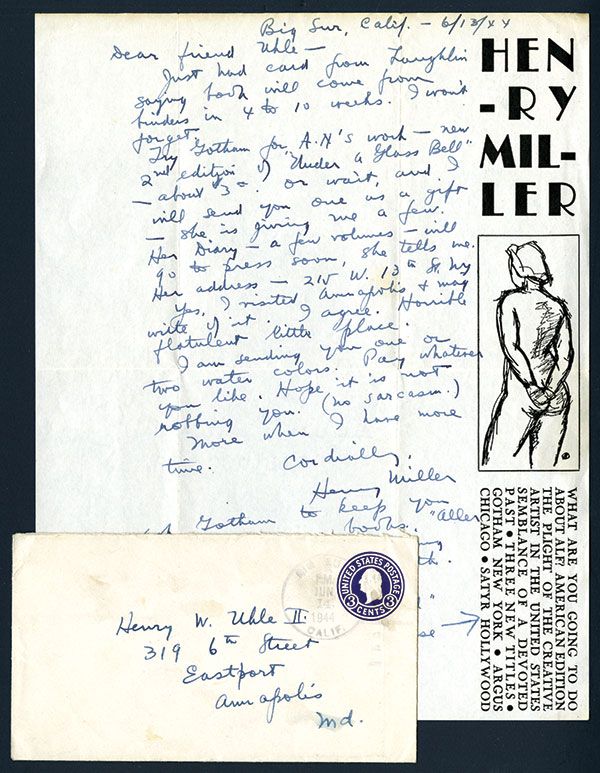 Big Sur, Calif. – 6/13/44
Dear friend Uhle –
Just had card from Laughlin
saying book will come from
binders in 4 to 10 weeks. I won't
forget.
Try Gotham for A.N's work – new
2nd edition of "Under a Glass Bell"
– about $3.00 or wait, and I
will send you one as a gift
– she is giving me a few.
Her Diary – a few volumes – will
go to press soon, she tells me.
Her address – 215 W. 13th St. N.Y.
Yes, I visited Annapolis & may
write of it. I agree. Horrible
flatulent little place.
I am sending you one or
two water colors. Pay whatever
you like. Hope it is not
robbing you. (no sarcasm.)
More when I have more
time.
Cordially,
Henry Miller
Gotham to keep you
books. "Aller
HEN
-RY
MIL-
LER
WHAT ARE YOU GOING TO DO
ABOUT ALF? AMERICAN EDITION
THE PLIGHT OF THE CREATIVE
ARTIST IN THE UNITED STATES
SEMBLANCE OF A DEVOTED
PAST • THREE NEW TITLES •
GOTHAM NEW YORK • ARGUS
CHICAGO • SATYR HOLLYWOOD
UNITED STATES POSTAGE
3 CENTS 3
PM
JUN
14
1944
CALIF.
Henry W. Uhle II.
319 6th Street
Eastport
Annapolis
Md.